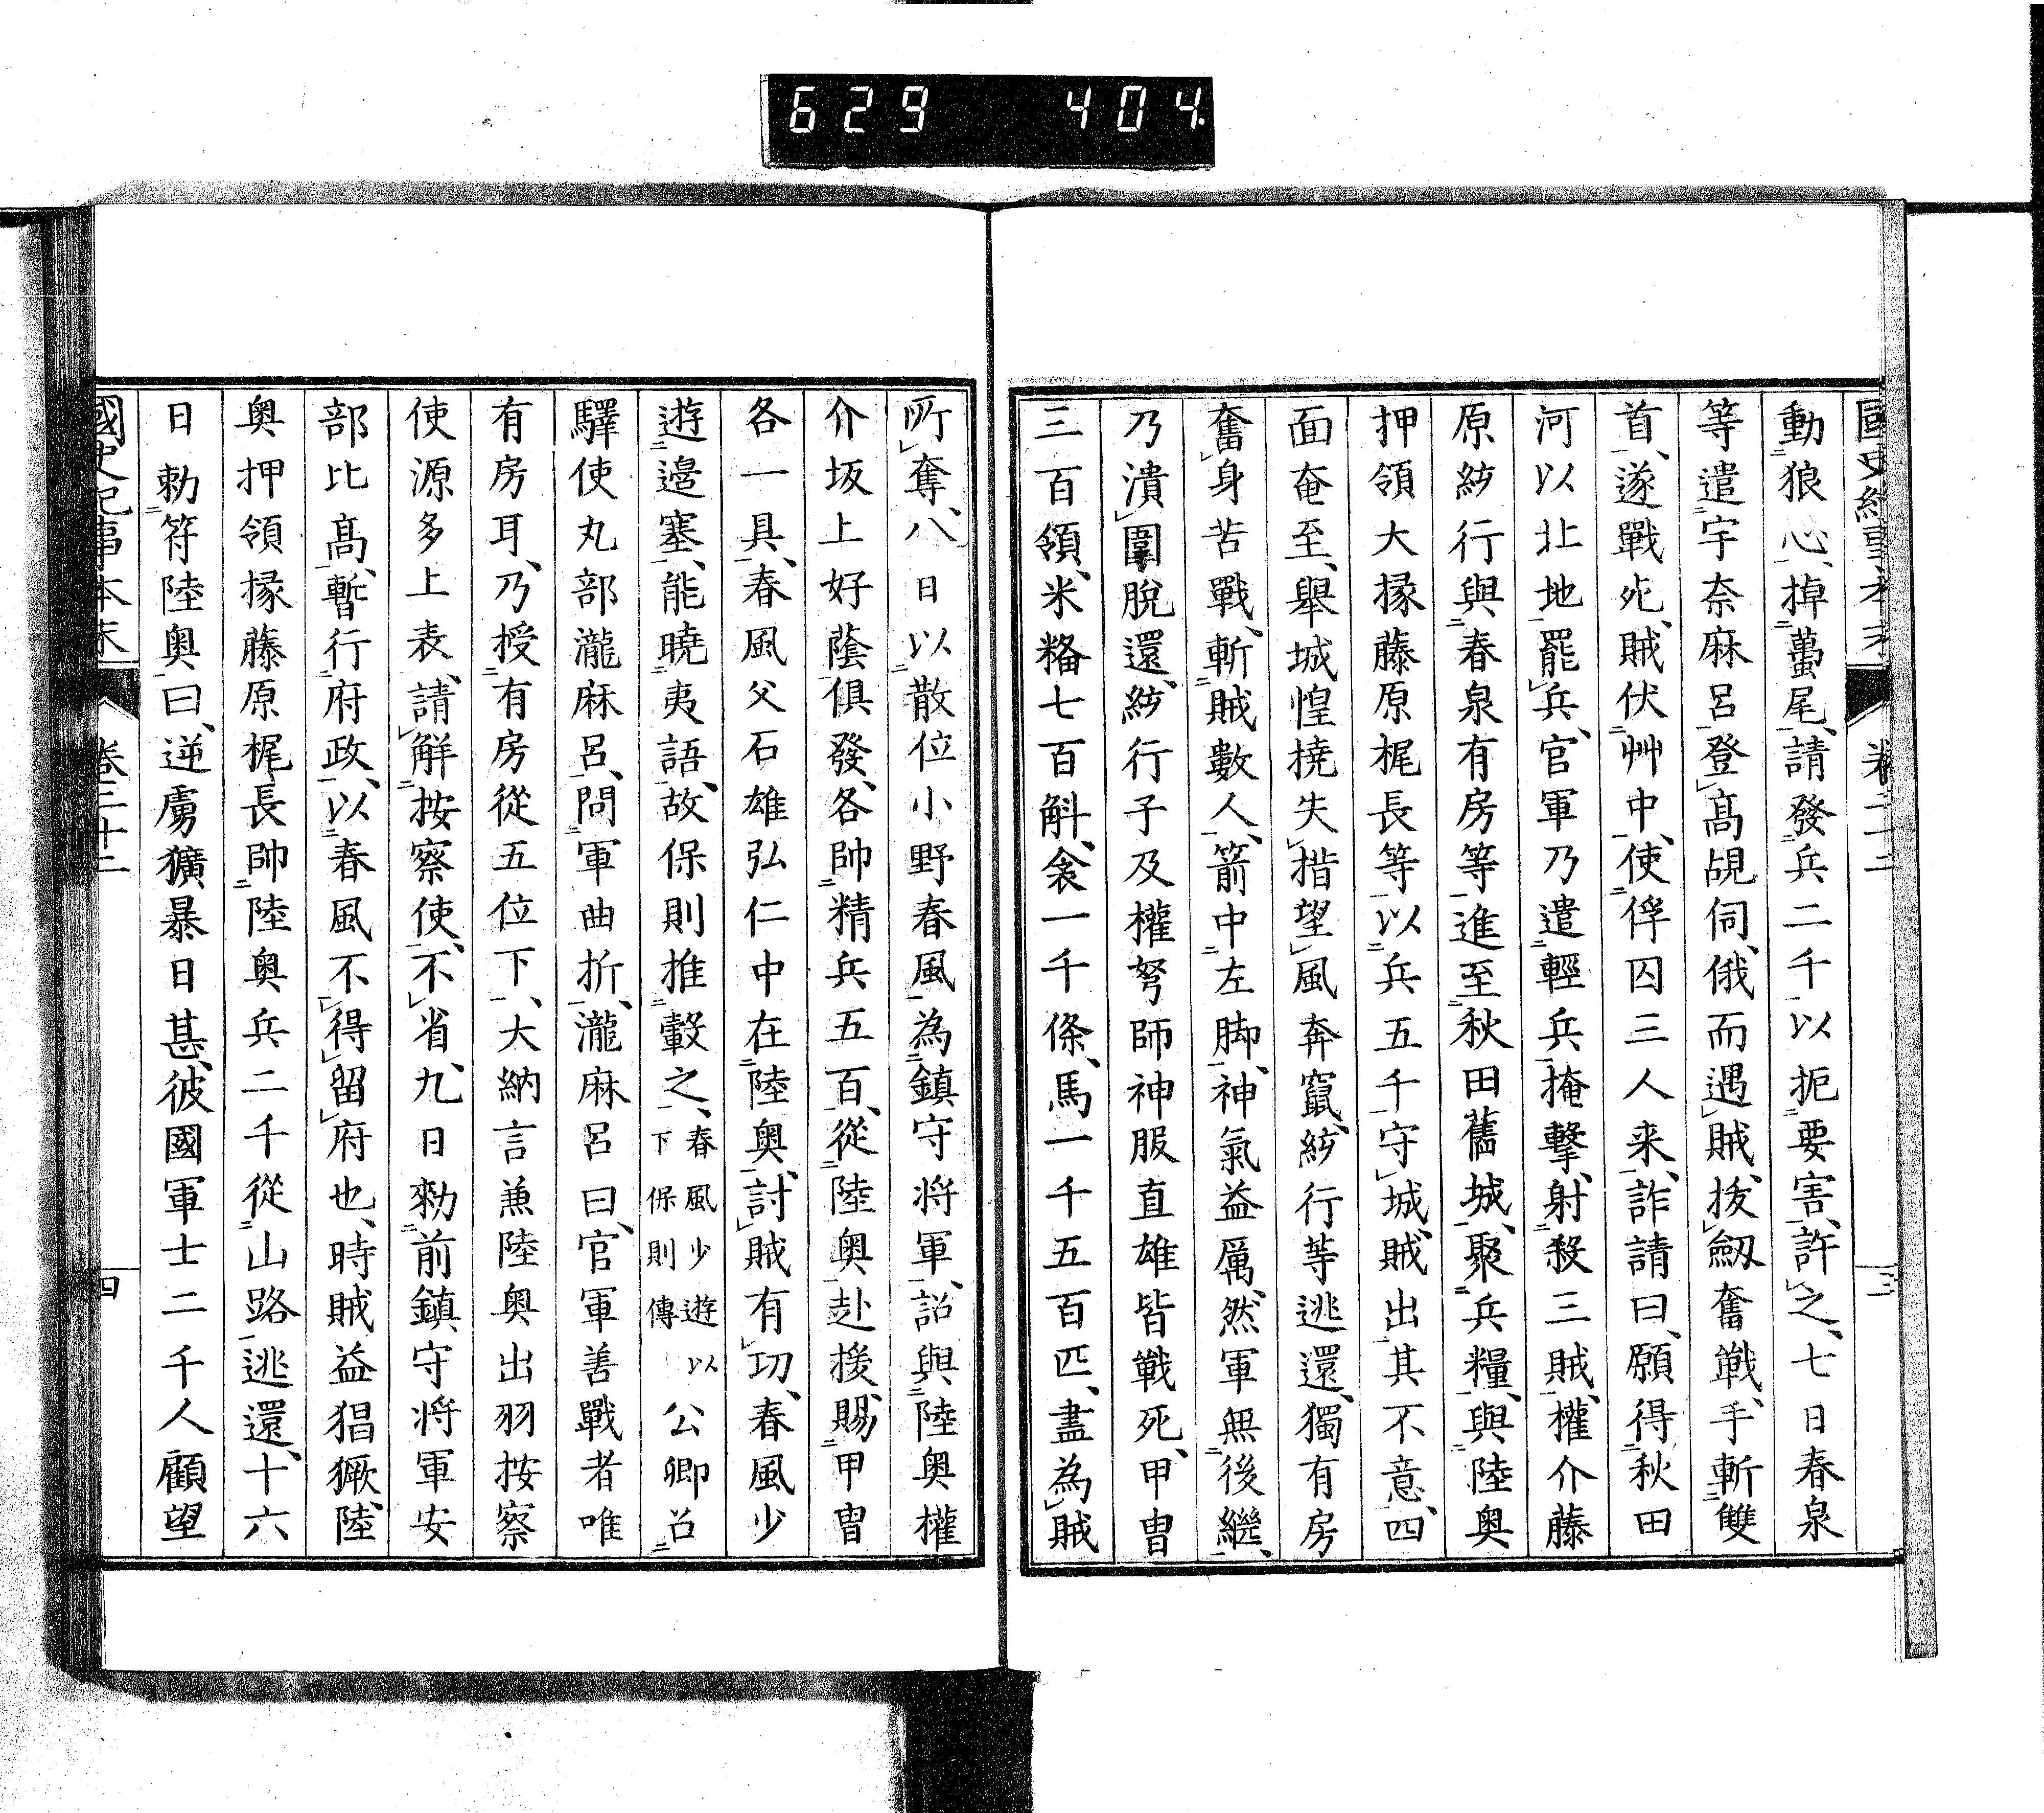 629 404
國史紀事本末 卷二十二 三
動狼心、掉蠆尾、請發兵二千以扼要害、許之、七日春泉
等遣宇奈麻呂登高覘伺、俄而遇賊、拔劔奮戰、手斬雙
首、遂戰死、賊伏艸中、使俘囚三人来、詐請曰、願得秋田
河以北地罷兵、官軍乃遣輕兵掩擊、射殺三賊、權介藤
原紡行與春泉有房等進至秋田舊城、聚兵糧、與陸奥
押領大掾藤原梶長等以兵五千守城、賊出其不意、四
面奄至、舉城惶撓失措望風奔竄、紡行等逃還、獨有房
奮身苦戰、斬賊數人、箭中左脚、神氣益厲、然軍無後繼、
乃潰圍脫還、紡行子及權弩師神服直雄皆戰死、甲冑
三百領、米糒七百斛、衾一千條、馬一千五百匹、盡為賊
所奪、八日以散位小野春風為鎮守将軍、詔與陸奥權
介坂上好蔭俱發、各帥精兵五百、從陸奥赴援、賜甲冑
各一具、春風父石雄弘仁中在陸奥、討賊有功、春風少
遊邉塞、能曉夷語、故保則推轂之、春風少遊以下保則傳公卿召
驛使丸部瀧麻呂、問軍曲折、瀧麻呂曰、官軍善戰者唯
有房耳、乃授有房從五位下、大納言兼陸奥出羽按察
使源多上表、請解按察使、不省、九日勑前鎮守将軍安
部比高、暫行府政、以春風不得留府也、時賊益猖獗、陸
奥押領掾藤原梶長帥陸奥兵二千從山路逃還、十六
日勅符陸奥曰、逆虜獷暴日甚、彼國軍士二千人顧望
國史紀事本末 卷二十二 四